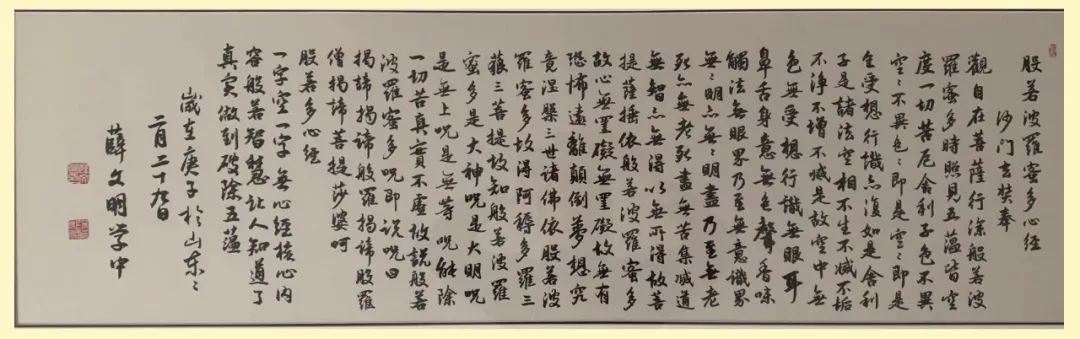 般若波羅蜜多心经
沙门玄奘奉
觀自在菩薩行深般若波
羅蜜多時照見五藴皆空
度一切苦厄舍利子色不異
空〻不異色〻即是空〻即是
色受想行識亦復如是舍利
子是諸法空相不生不滅不垢
不淨不增不減是故空中無
色無受想行識無眼耳
鼻舌身意無色聲香味
觸法無眼界乃至無意識界
無〻明亦無〻明盡乃至無老
死亦無老死盡無苦集滅道
無智亦無得以無所得故菩
提薩埵依般若波羅蜜多
故心無罣礙無罣礙故無有
恐怖遠離顛倒夢想究
竟涅槃三世諸佛依般若波
羅蜜多故得阿耨多羅三
藐三菩提故知般若波羅
蜜多是大神呪是大明呪
是無上呪是無等呪能除
一切苦真實不虚故説般若
波羅蜜多呪即説呪曰
揭諦揭諦般羅揭諦般羅
僧揭諦菩提莎婆呵
般若多心經
一字空一字無心經核心内
容般若智慧让人知道了
真实做到破除五藴
歲在庚子於山东〻
二月二十九日
薛文明学中